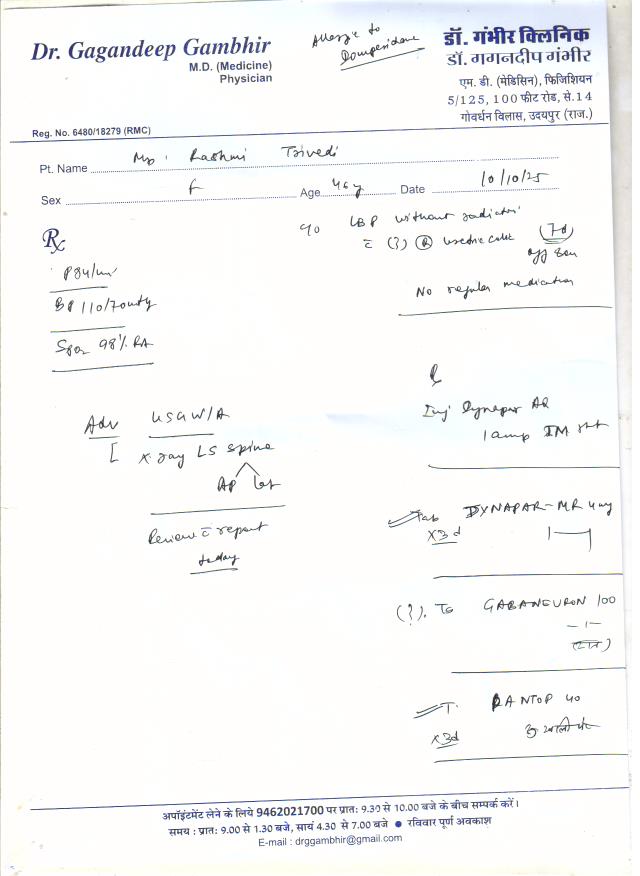 Dr. Gagandeep Gambhir
M.D. (Medicine)
Physician
Reg. No. 6480/18279 (RMC)
Allergic to
Domperidone
डॉ. गंभीर क्लिनिक
डॉ. गगनदीप गंभीर
एम. डी. (मेडिसिन), फिजिशियन
5/125, 100 फीट रोड, से.14
गोवर्धन विलास, उदयपुर (राज.)
Pt. Name Rashmi Trivedi
Sex F Age 46y Date 10/10/25
LBP without radiation
c̄ (?) (R) colic (7d)
No regular medication
Rx
P 84/min
BP 110/70
SpO2 98% RA
Adv USG W/A
X-ray LS spine
AP Lat
Review c̄ report
today
Inj Dynapar AQ
1 amp IM stat
Tab DYNAPAR-MR 4mg
x3d 1—1
(?). Tab GABANEURON 100
-1-
T. PANTOP 40
x3d खाली पेट
अपॉइंटमेंट लेने के लिये 9462021700 पर प्रातः 9.30 से 10.00 बजे के बीच सम्पर्क करें।
समय : प्रातः 9.00 से 1.30 बजे, सायं 4.30 से 7.00 बजे ● रविवार पूर्ण अवकाश
E-mail : drggambhir@gmail.com